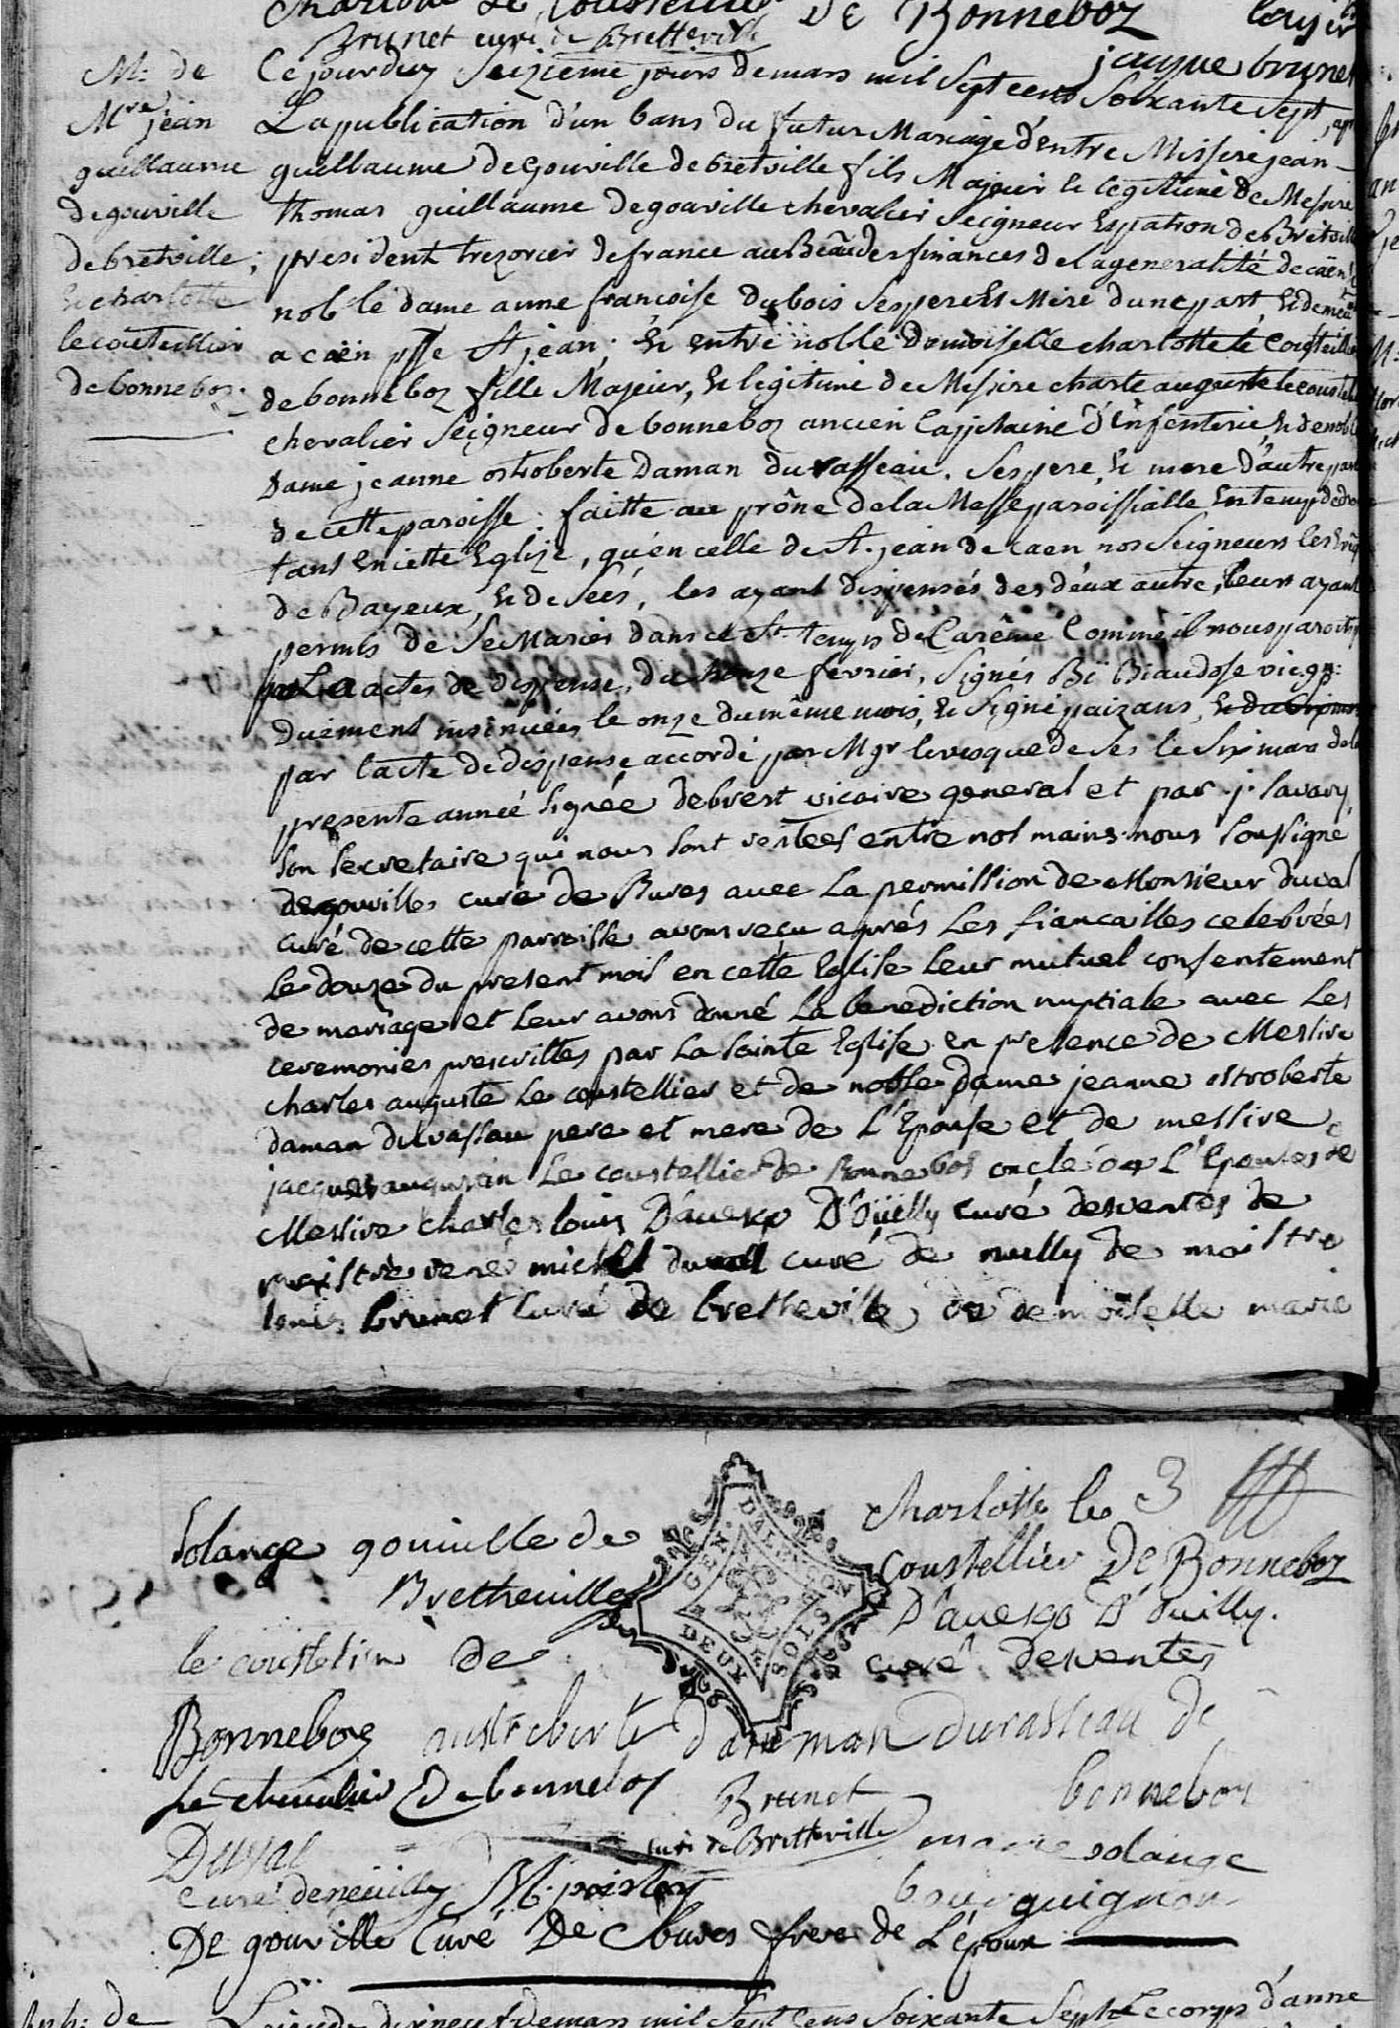 Charlotte Le Coustellier De Bonneboz Louis
Brunet curé de Bretteville
jacque brunet
M: de
Mre jean
guillaume
degouville
debretville;
et charlotte
lecouteillier
debonneboz.
Cejourduy Seizieme jours demars mil Sept cents Soixante Sept, apr
La publication d'un bans du futur Mariage d'Entre Missire jean
guillaume de gouville de bretville fils Majeur et legitime de Messire
thomas guillaume degouville chevalier Seigneur Es patron de Bretville
president trezorier de france au Beau des finances de la generalité de caën
noble dame anne françoise dubois Ses pere Et Mere d'une part, Et demeu
a caën psse St jean; Et entre noble Demoiselle charlotte le Cousteillier
de bonneboz fille Majeur, Et legitime de Messire charle auguste le coustel
chevalier Seigneur de bonneboz ancien Cappitaine D'infenterie, Et de noble
Dame jeanne ostroberte Daman duvasseau. Ses pere, Et mere D'autre part
de cette paroisse. faitte au prône de la Messe paroissialle En temp de
tant En cette Eglize, qu'en celle de St. jean de Caen nos Seigneurs les
de Bayeux, Et de Seés, les ayant dispensés des déux autre, leurs ayant
permis de Se Marier dans ce St. temps de Carême Comme il nous paroit
La actes de dispense, du onze fevrier, Signés Biaudosse vic. gn:
Duement insinuées, le onze du même mois, Et Signé paizans,
par l'acte de dispense accordé par Mgr levesque de Ses le Six mars de la
presente année signée debrest vicaire general et par j. savary
son secretaire qui nous sont restées entre nos mains. nous soussigné
degouville curé de Bures avec La permission de Monsieur duval
curé de cette parroisse avons reçu aprés Les fiancailles celebrées
Le douze du present mois en cette Eglise Leur mutuel consentement
de mariage et Leur avons donné La benediction nuptiale avec Les
ceremonies prescrittes par La sainte Eglise en presence de Messire
charles auguste Le coustellier et de noble Dame jeanne ostroberte
daman duvassau pere et mere de L'Epouse et de messire
jacques augustin Le coustellier de Bonneboz oncle de L'Epouse, de
Messire charles louis D'auesgo D'oüilly curé desventes de
maistre rené michel duval curé de nully de maistre
louis brunet curé de bretheville de demoiselle marie
solange gouville de
Bretheuille
Charlotte le 3
Coustellier De Bonneboz
GEN. DALENCON
DEUX SOLS
D'auesgo D'Ouilly.
curé desventes
le coustelier de
Bonneboz austreberte daneman durasteau de
bonneboz
Le chevalier de bonneboz
Brunet
curé de Bretteville
Duval
curé deneuilly
marie solange
bourguignon
De gouville Curé De Bures frere de L'époux
Le jeudy dixneuf de mars mil Sept Cens Soixante Sept Le corps d'anne